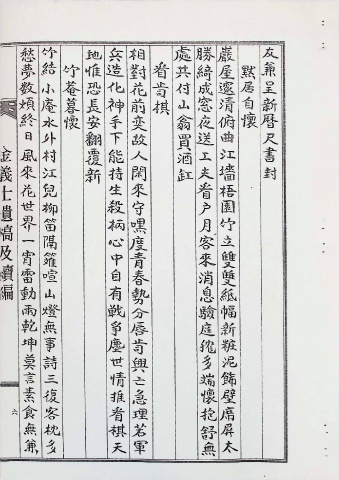 友兼呈新曆尺書封
默居自懷
巖屋邃清俯曲江墻梧園竹立雙雙紙幅新粧泥飾壁席屏太
勝綺成窓夜送工夫看戶月客來消息驗庭狵多端懷抱舒無
處共付山翁買酒缸
看肯棋
相對花前奕故人閑來守嘿度青春勢分唇齒興亡急理若軍
兵造化神手下能持生殺柄心中自有戰爭塵世情推看棋天
地惟恐長安翻覆新
竹菴暮懷
竹結小庵水外村江兒柳笛隔籬喧山燈無事詩三復客枕多
愁夢數煩終日風來花世界一宵雷動雨乾坤莫言素食無兼
金義士遺稿及續編
六